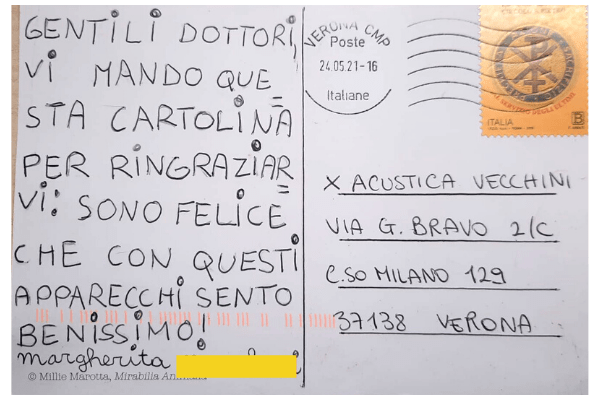 GENTILI DOTTORI,
VI MANDO QUE=
STA CARTOLINA
PER RINGRAZIAR=
VI! SONO FELICE
CHE CON QUESTI
APPARECCHI SENTO
BENISSIMO!
margherita
© Millie Marotta, Mirabilia
VERONA CMP
Poste
24.05.21-16
Italiane
ITALIA
B
X ACUSTICA VECCHINI
VIA G. BRAVO 2/C
C.SO MILANO 129
37138 VERONA